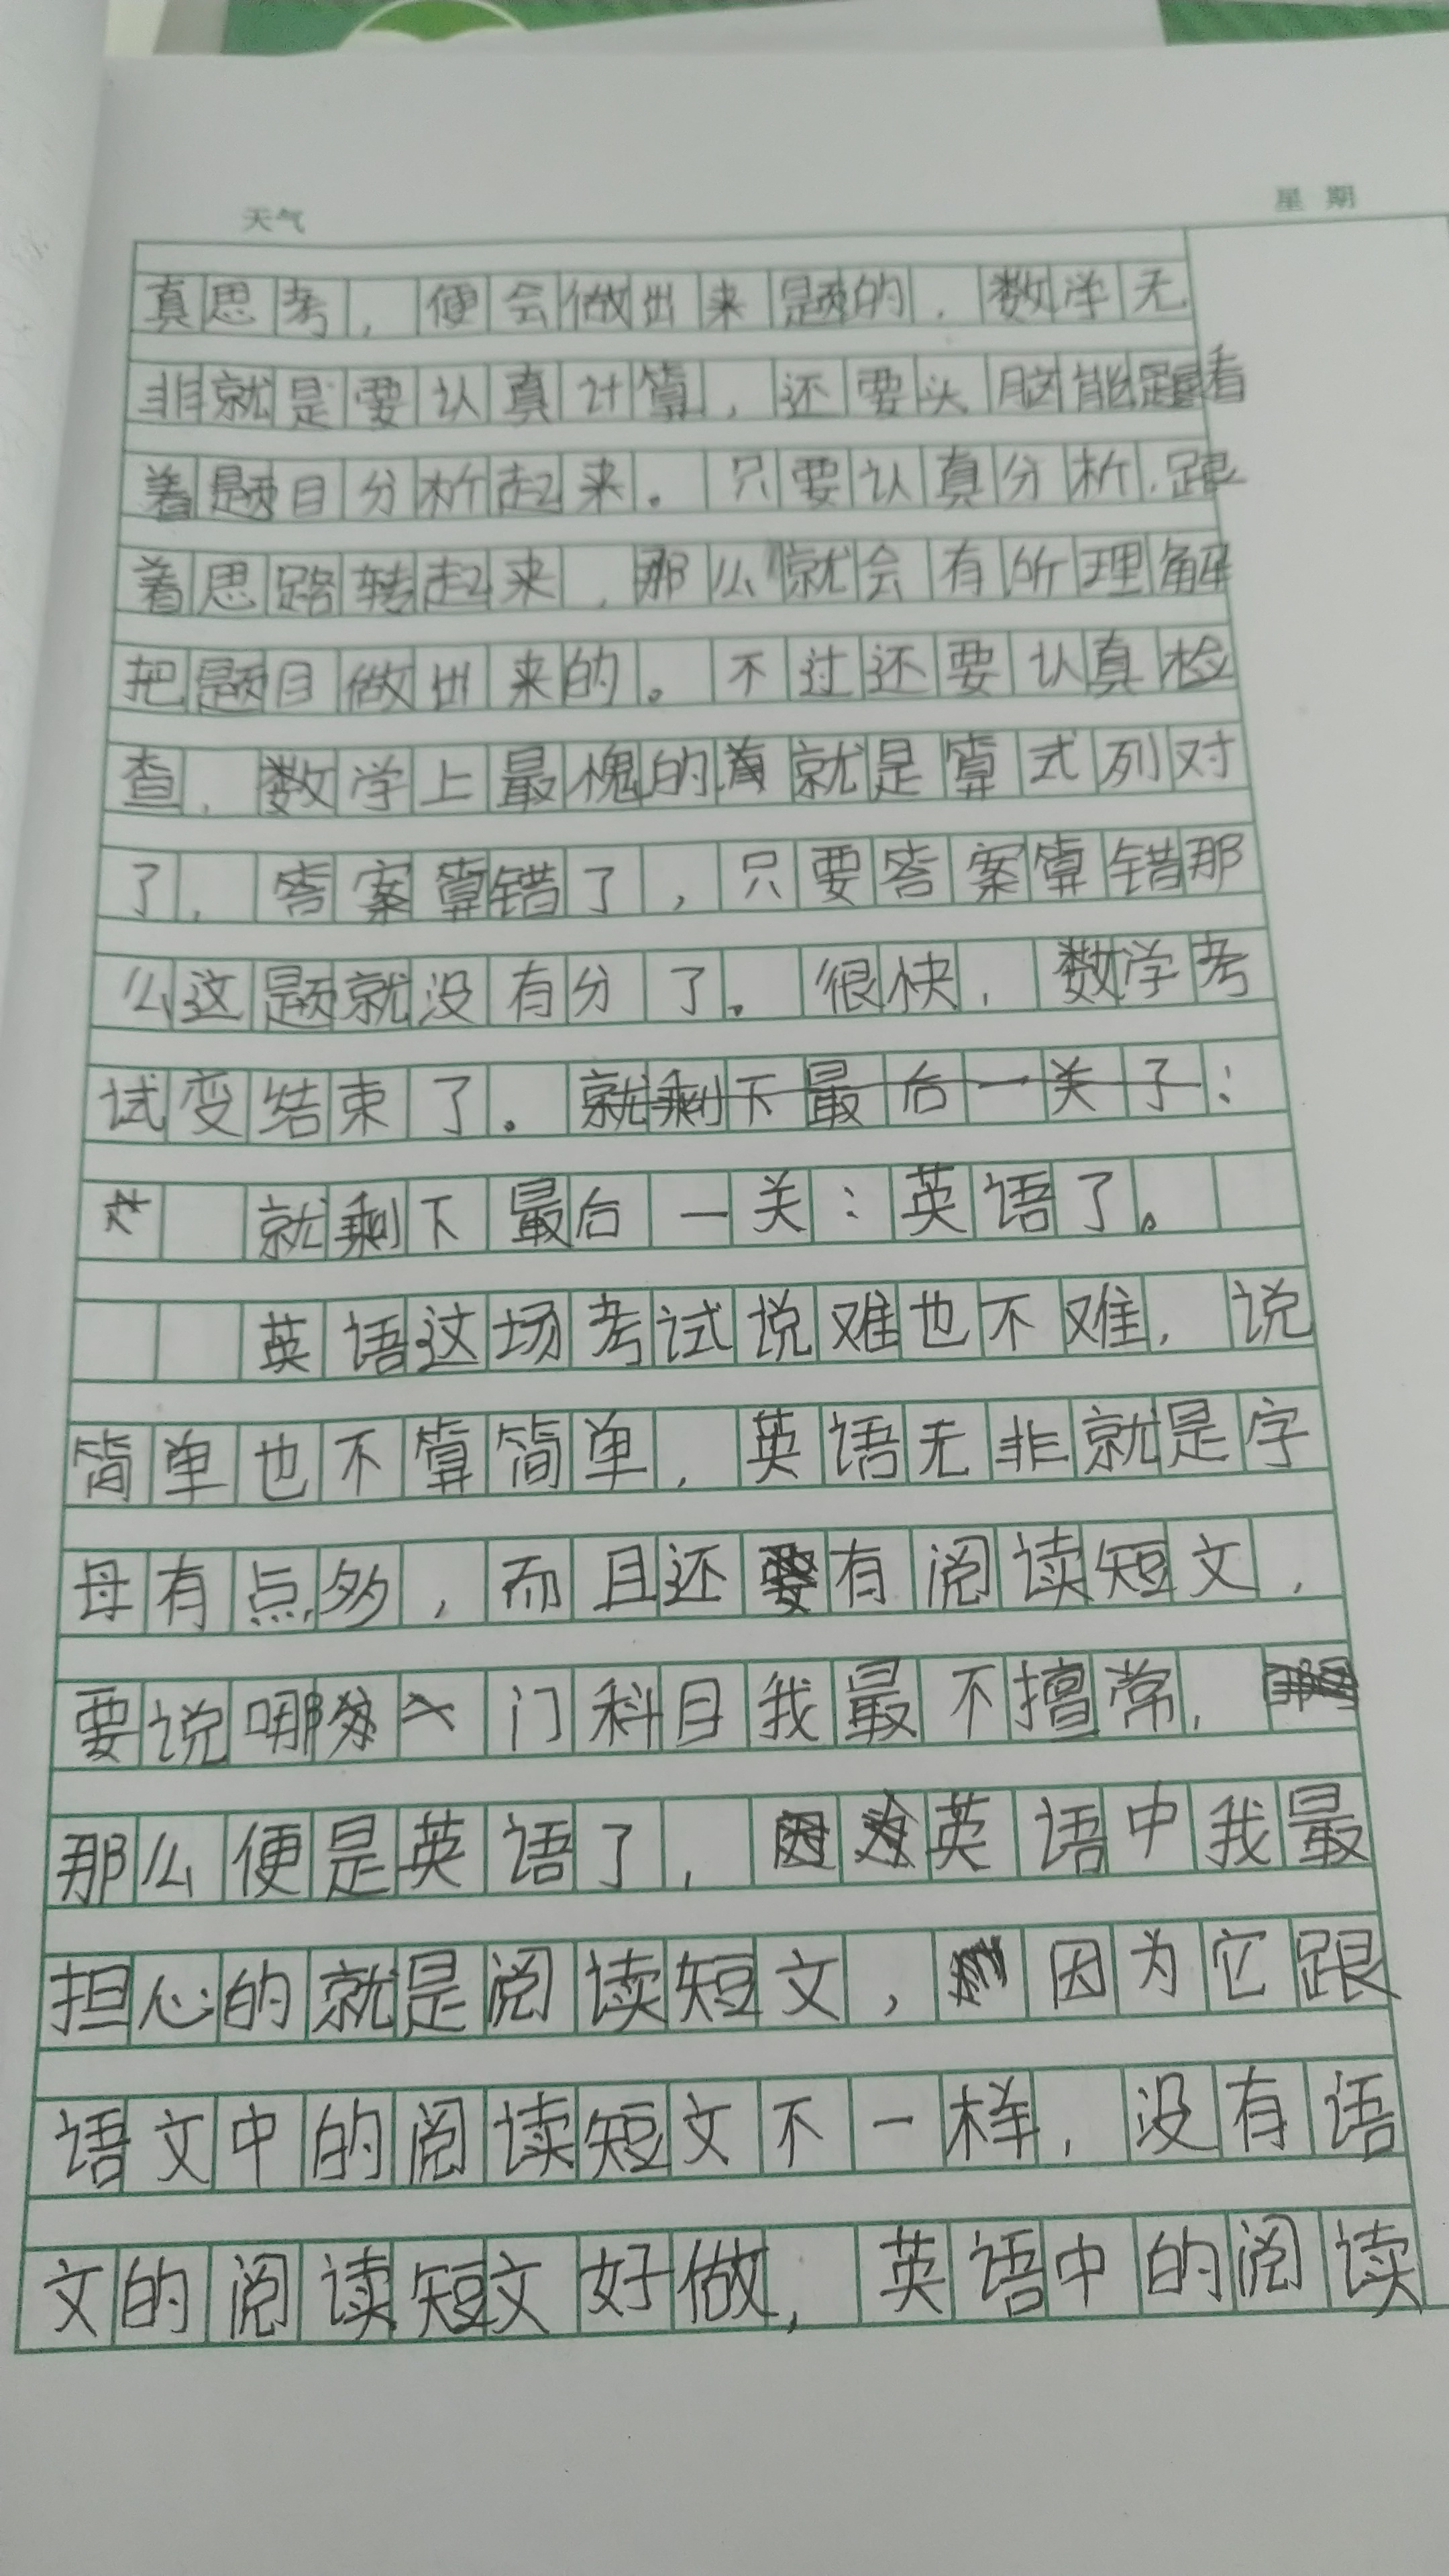 天气 星期
真思考，便会做出来题的，数学无
非就是要认真计算，还要头脑能跟着
着题目分析起来。只要认真分析，跟
着思路转起来，那么就会有所理解
把题目做出来的。不过还要认真检
查，数学上最愧的就是算式列对
了，答案算错了，只要答案算错那
么这题就没有分了。很快，数学考
试变结束了。就剩下最后一关了：
就剩下最后一关：英语了。
英语这场考试说难也不难，说
简单也不算简单，英语无非就是字
母有点多，而且还有阅读短文，
要说哪门科目我最不擅常，
那么便是英语了，英语中我最
担心的就是阅读短文，因为它跟
语文中的阅读短文不一样，没有语
文的阅读短文好做，英语中的阅读